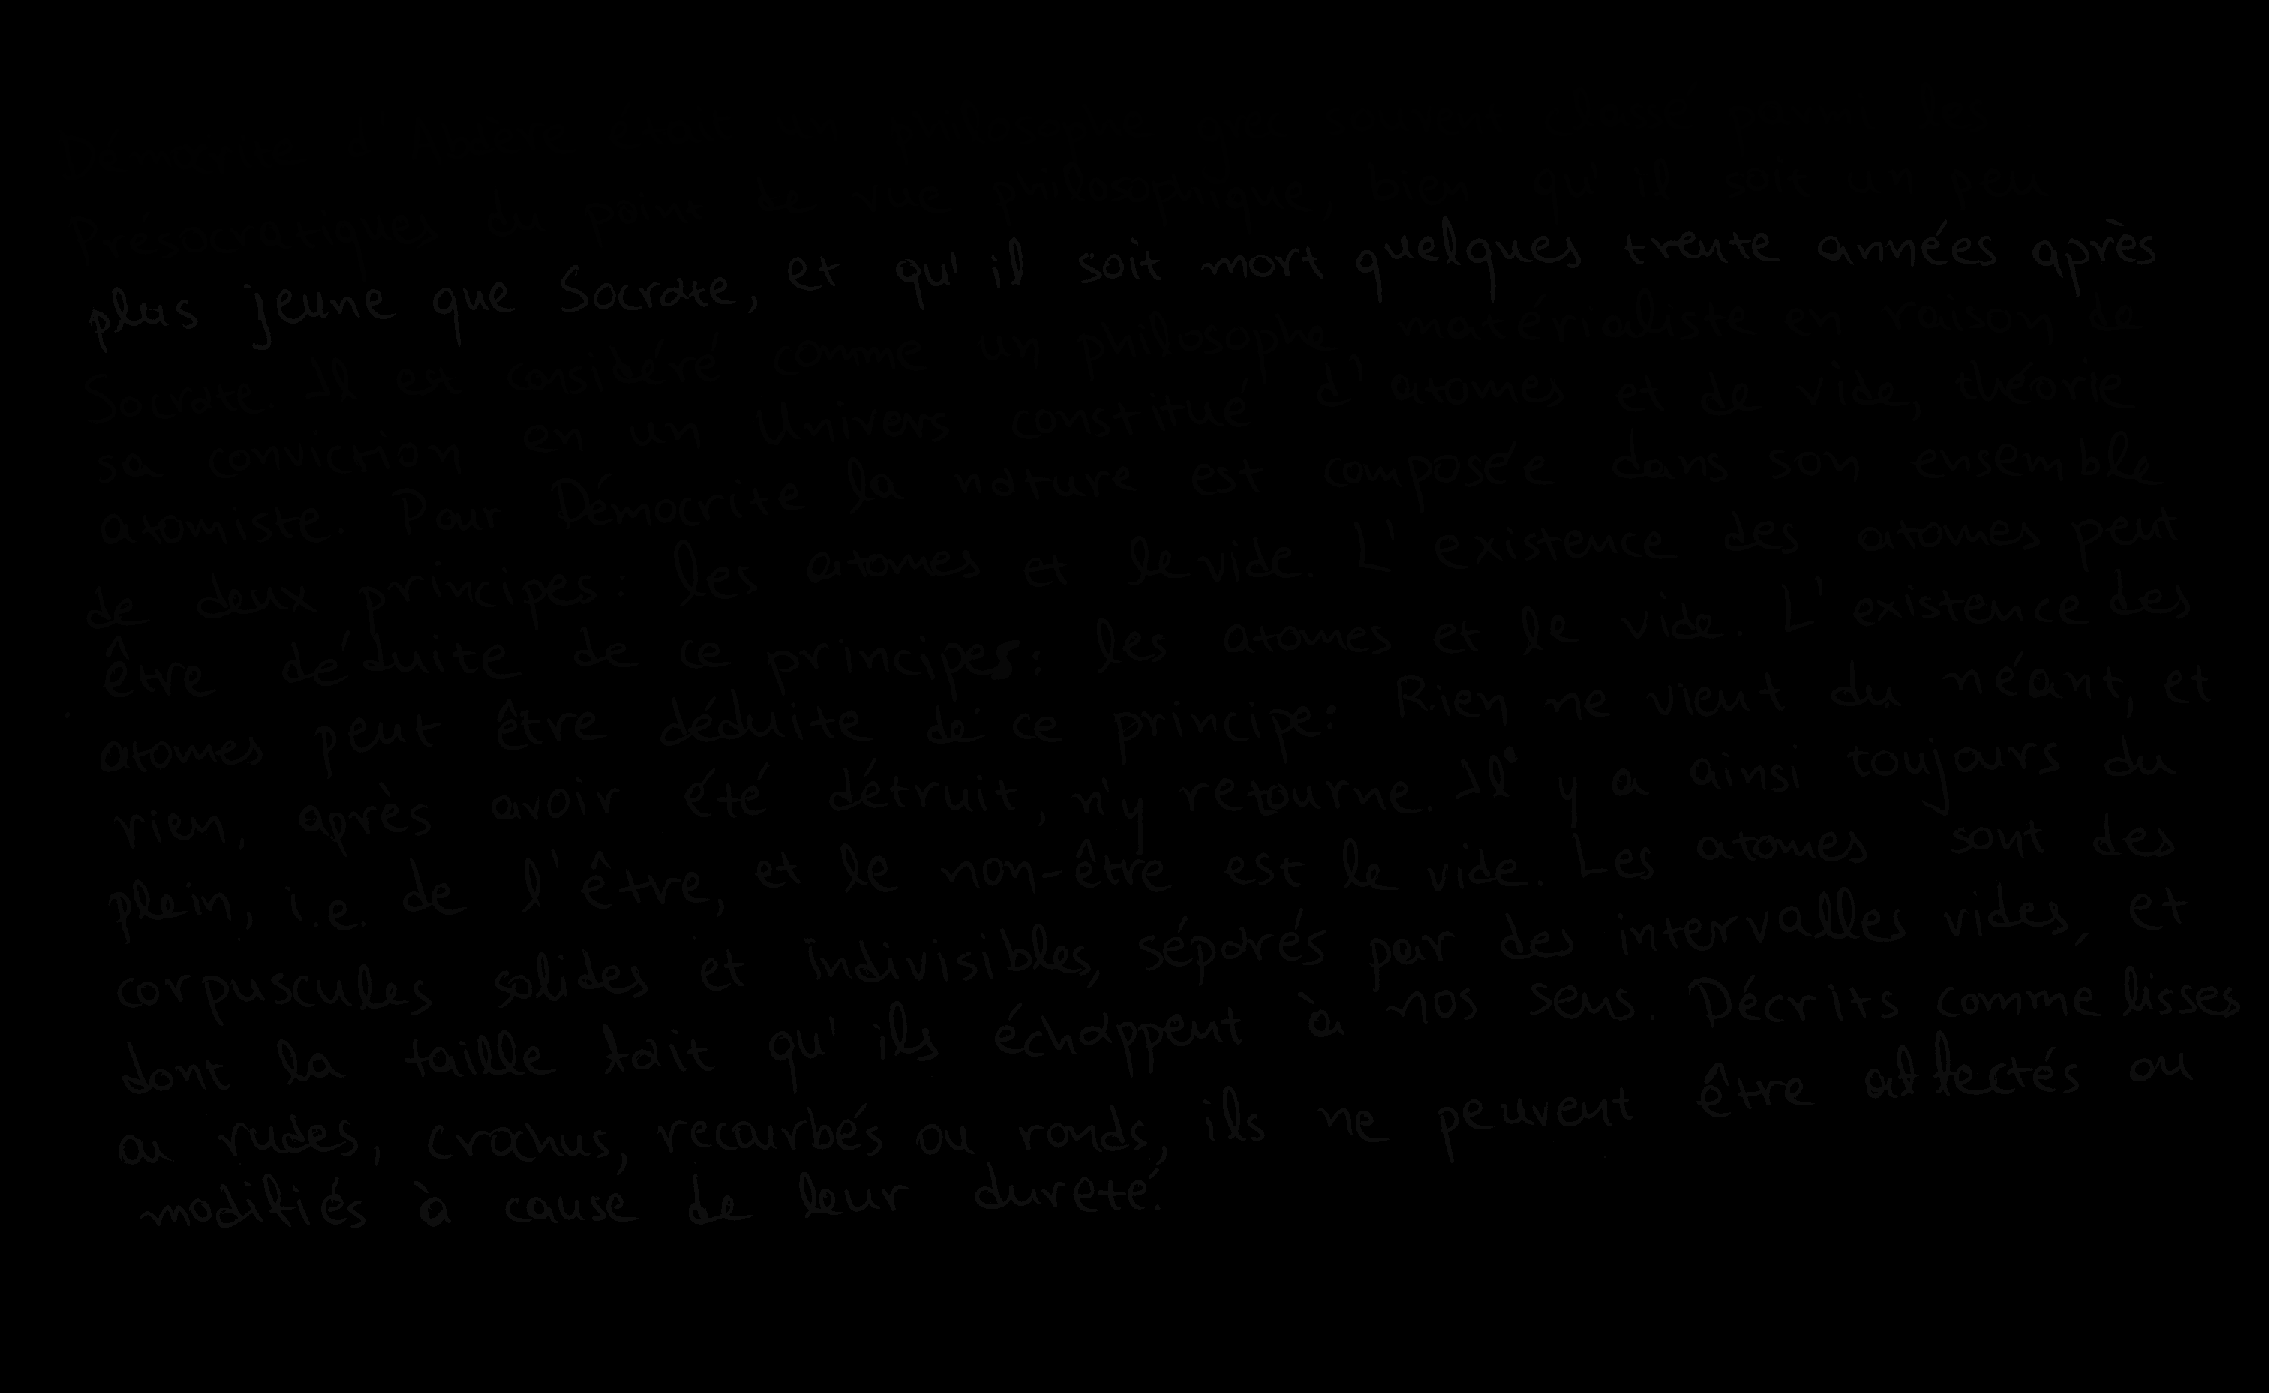 Démocrite d'Abdère était un philosophe
Présocratiques du point de vue philosophique, bien qu'il soit un peu
plus jeune que Socrate, et qu'il soit mort quelques trente années après
Socrate. Il est considéré comme un philosophe matérialiste en raison de
sa conviction en un Univers constitué d'atomes et de vide, théorie
atomiste. Pour Démocrite la nature est composée dans son ensemble
de deux principes: les atomes et le vide. L'existence des atomes peut
être déduite de ce principes: les atomes et le vide. L'existence des
atomes peut être déduite de ce principe: Rien ne vient du néant, et
rien, après avoir été détruit, n'y retourne. Il y a ainsi toujours du
plein, i.e. de l'être, et le non-être est le vide. Les atomes sont des
corpuscules solides et indivisibles, séparés par des intervalles vides, et
dont la taille fait qu'ils échappent à nos sens. Décrits comme lisses
ou rudes, crochus, recourbés ou ronds, ils ne peuvent être affectés ou
modifiés à cause de leur dureté.